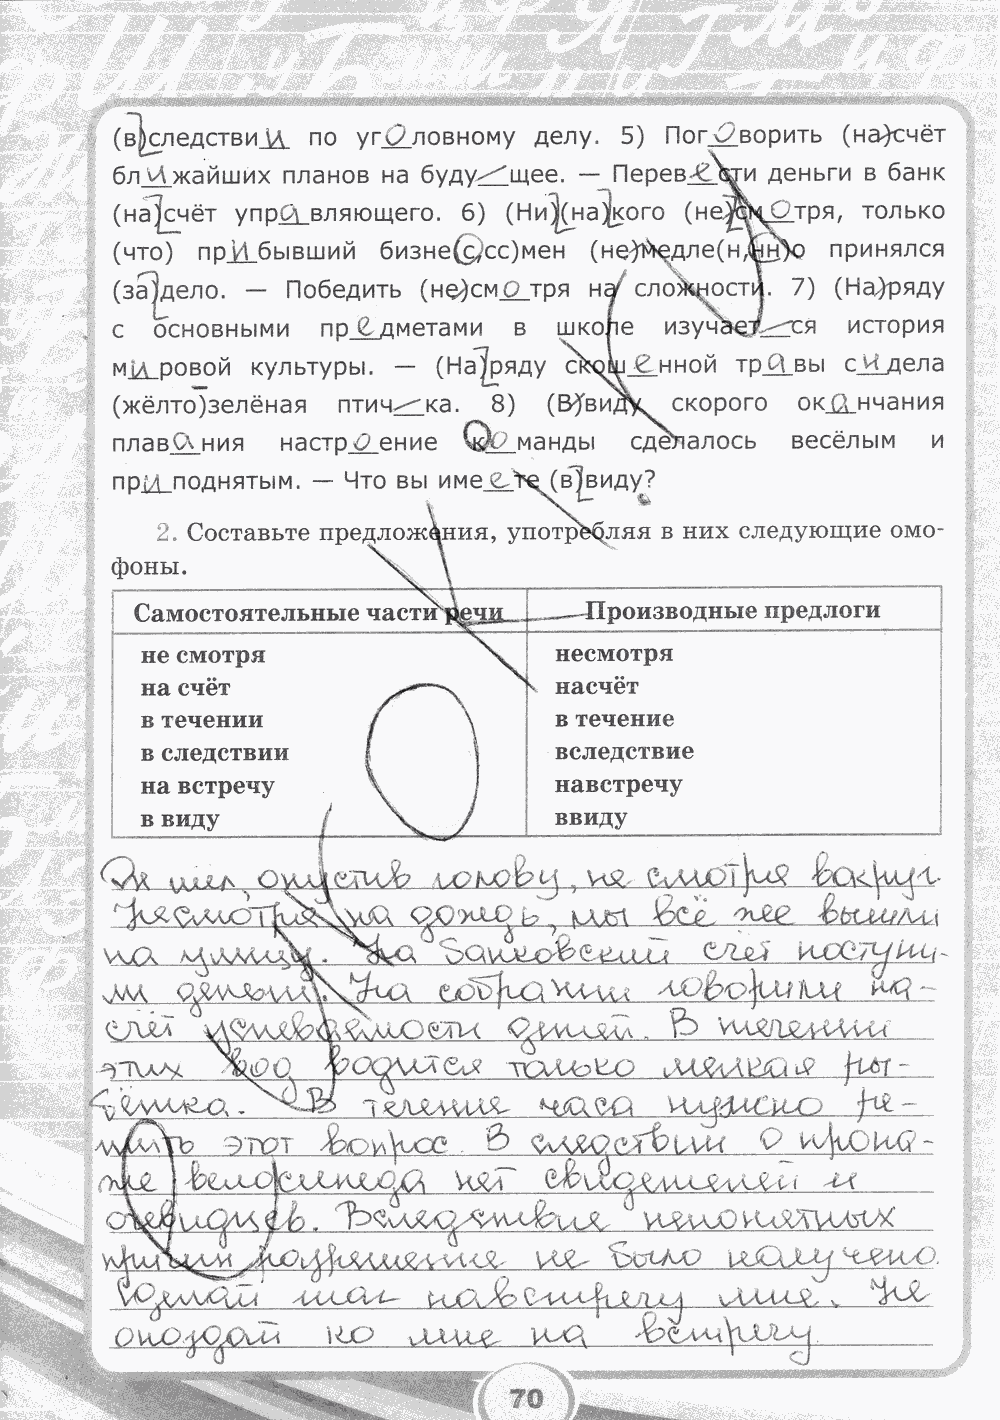 (в)следстви и по уг о ловному делу. 5) Пог о ворить (на)счёт
бл и жайших планов на буду щее. — Перев е сти деньги в банк
(на)счёт упр а вляющего. 6) (Ни)(на)кого (не)см о тря, только
(что) пр и бывший бизне(с,сс)мен (не)медле(н,нн)о принялся
(за)дело. — Победить (не)см о тря на сложности. 7) (На)ряду
с основными пр е дметами в школе изучает ся история
м и ровой культуры. — (На)ряду скош е нной тр а вы с и дела
(жёлто)зелёная птич ка. 8) (В)виду скорого ок а нчания
плав а ния настр о ение к о манды сделалось весёлым и
пр и поднятым. — Что вы име е те (в)виду?
2. Составьте предложения, употребляя в них следующие омо-
фоны.
Самостоятельные части речи Производные предлоги
не смотря несмотря
на счёт насчёт
в течении в течение
в следствии вследствие
на встречу навстречу
в виду ввиду
Он шел, опустив голову, не смотря вокруг.
Несмотря на дождь, мы всё же вышли
на улицу. На банковский счет поступи-
ли деньги. На собрании говорили на-
счёт успеваемости детей. В течении
этих вод водится только мелкая ры-
бёшка. В течение часа нужно ре-
шить этот вопрос. В следствии о пропа-
же велосипеда нет свидетелей и
очевидцев. Вследствие непонятных
причин разрешение не было получено.
Сделай шаг навстречу мне. Не
опоздай ко мне на встречу.
70